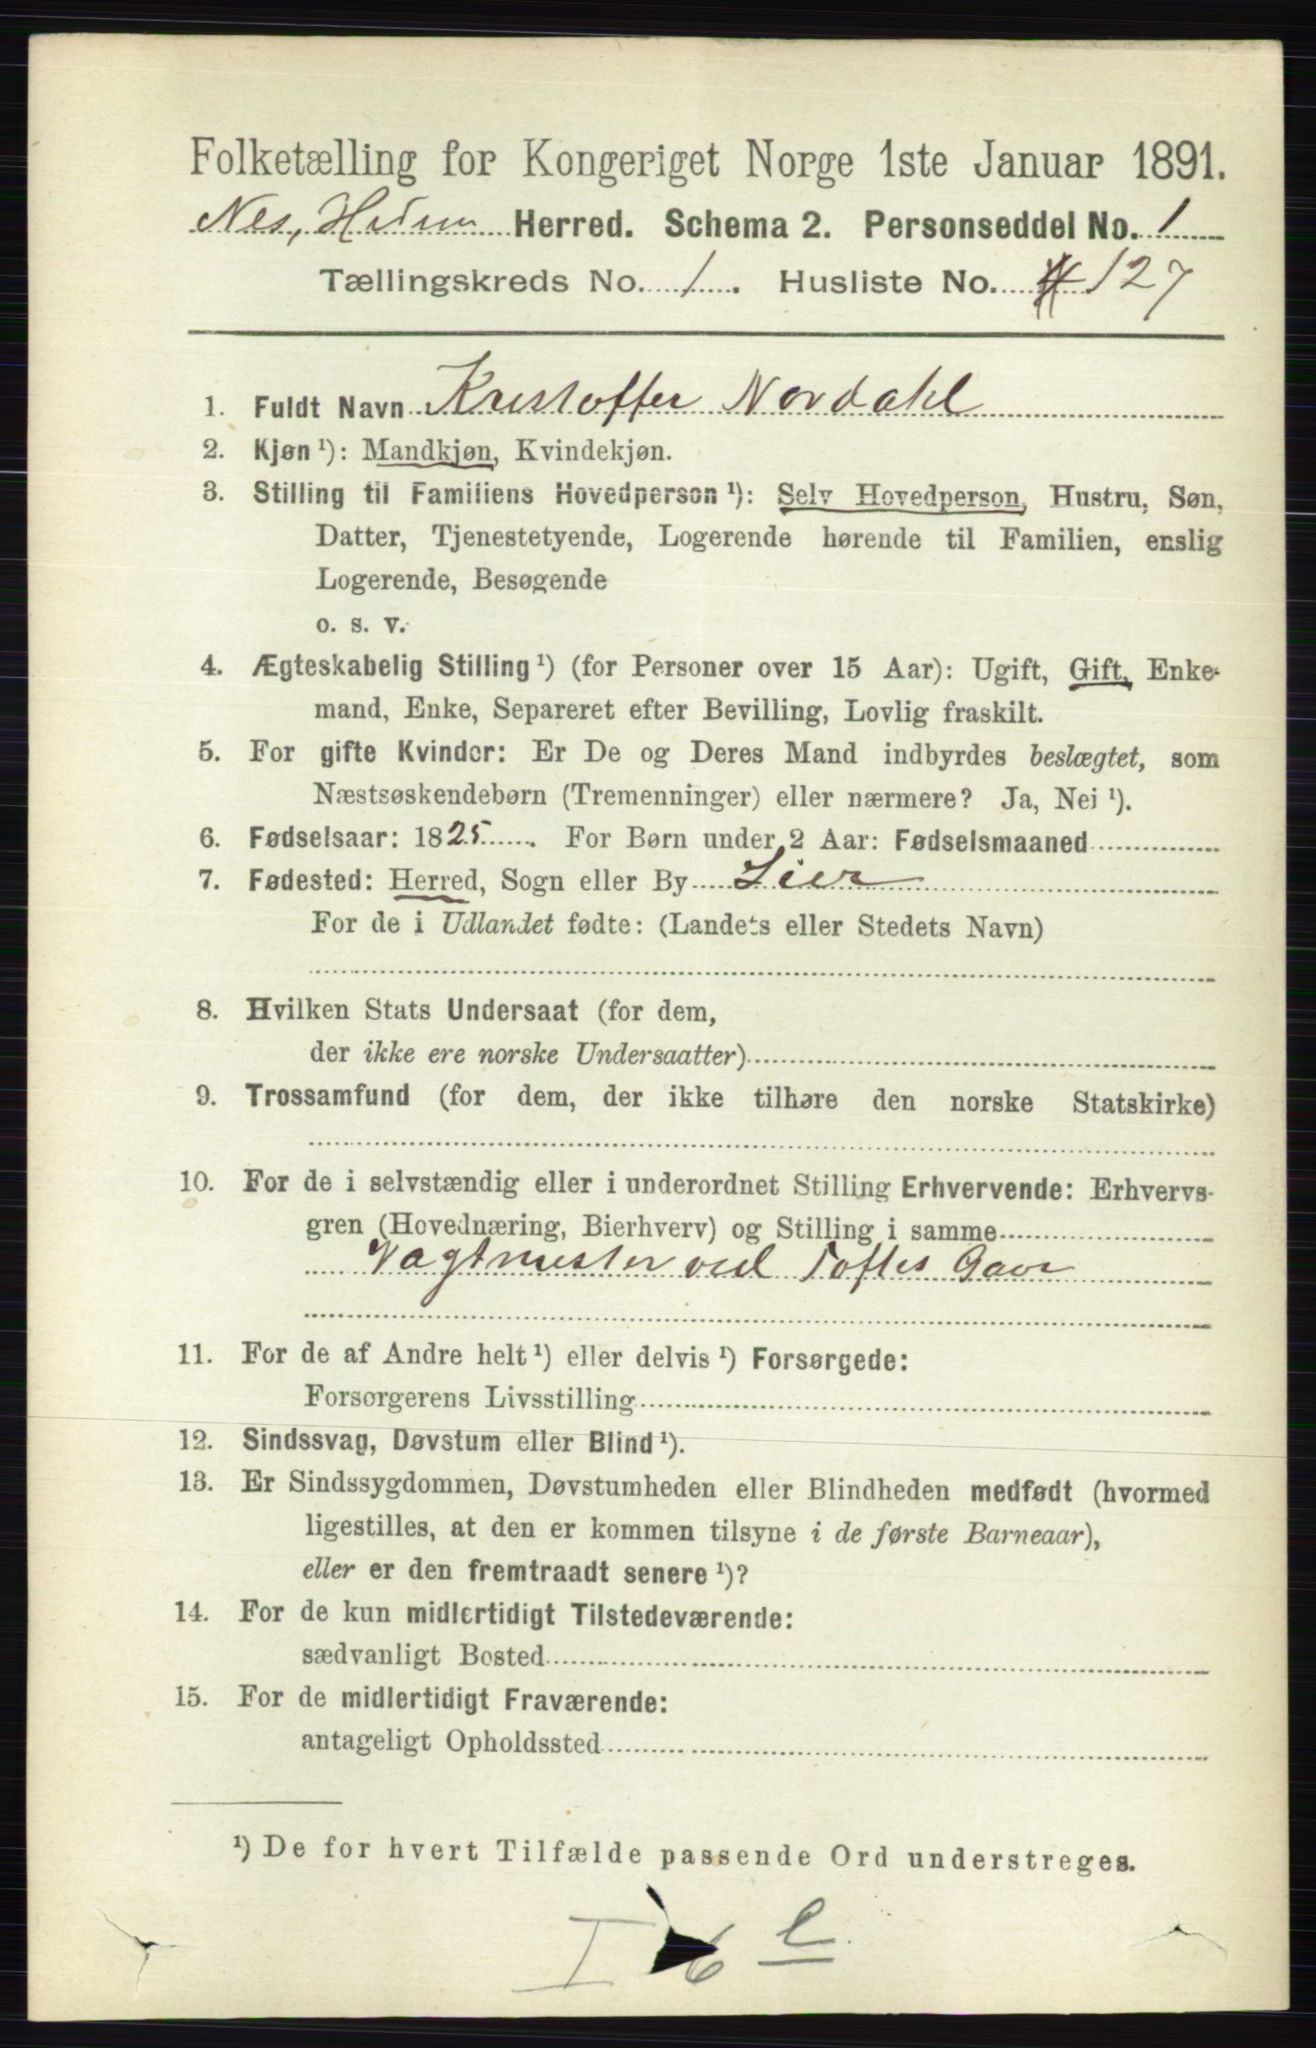 Folketælling for Kongeriget Norge 1ste Januar 1891.
Nes, Hedm Herred. Schema 2. Personseddel No. 1
Tællingskreds No. 1. Husliste No. 127
1. Fuldt Navn Kristoffer Nordahl
2. Kjøn ¹): Mandkjøn, Kvindekjøn.
3. Stilling til Familiens Hovedperson ¹): Selv Hovedperson, Hustru, Søn,
Datter, Tjenestetyende, Logerende hørende til Familien, enslig
Logerende, Besøgende
o. s. v.
4. Ægteskabelig Stilling ¹) (for Personer over 15 Aar): Ugift, Gift, Enke-
mand, Enke, Separeret efter Bevilling, Lovlig fraskilt.
5. For gifte Kvinder: Er De og Deres Mand indbyrdes beslægtet, som
Næstsøskendebørn (Tremenninger) eller nærmere? Ja, Nei ¹).
6. Fødselsaar: 1825. For Børn under 2 Aar: Fødselsmaaned
7. Fødested: Herred, Sogn eller By Lier
For de i Udlandet fødte: (Landets eller Stedets Navn)
8. Hvilken Stats Undersaat (for dem,
der ikke ere norske Undersaatter)
9. Trossamfund (for dem, der ikke tilhøre den norske Statskirke)
10. For de i selvstændig eller i underordnet Stilling Erhvervende: Erhvervs-
gren (Hovednæring, Bierhverv) og Stilling i samme
Vagtmester ved Toftes Gave
11. For de af Andre helt ¹) eller delvis ¹) Forsørgede:
Forsørgerens Livsstilling
12. Sindssvag, Døvstum eller Blind ¹).
13. Er Sindssygdommen, Døvstumheden eller Blindheden medfødt (hvormed
ligestilles, at den er kommen tilsyne i de første Barneaar),
eller er den fremtraadt senere ¹)?
14. For de kun midlertidigt Tilstedeværende:
sædvanligt Bosted
15. For de midlertidigt Fraværende:
antageligt Opholdssted
¹) De for hvert Tilfælde passende Ord understreges.
I 6 e